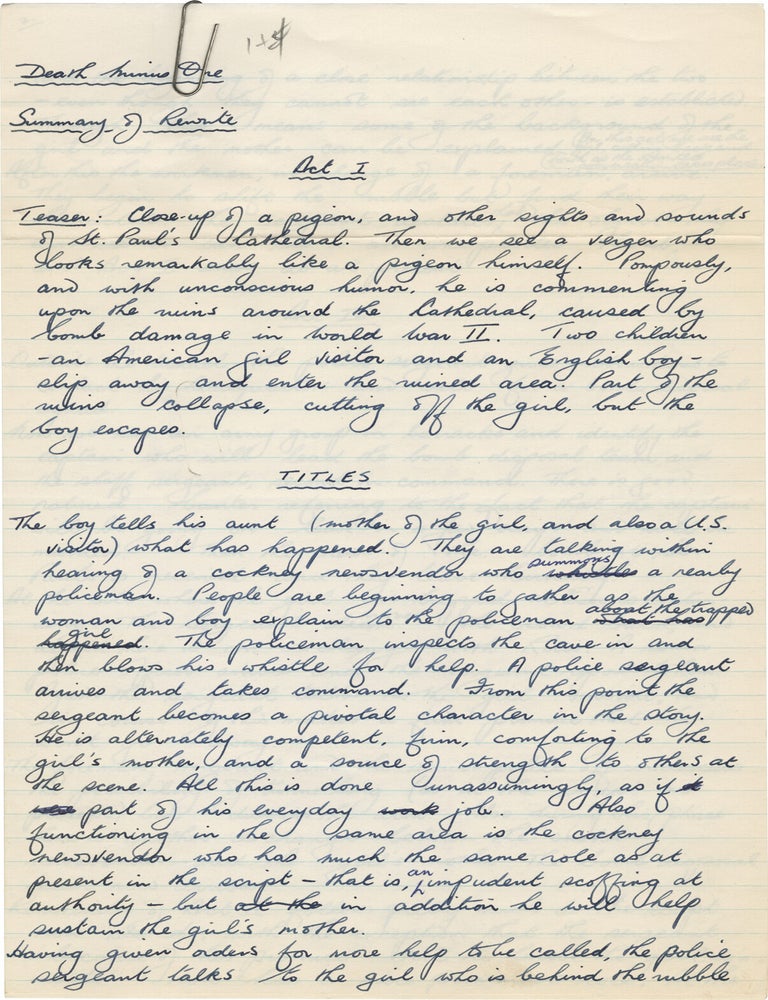 1+$
Death minus One
Summary of Rewrite
Act I
Teaser: Close-up of a pigeon, and other sights and sounds
of St. Paul's Cathedral. Then we see a verger who
looks remarkably like a pigeon himself. Pompously,
and with unconscious humor, he is commenting
upon the ruins around the Cathedral, caused by
bomb damage in World War II. Two children
- an American girl visitor and an English boy -
slip away and enter the ruined area. Part of the
ruins collapse, cutting off the girl, but the
boy escapes.
TITLES
The boy tells his aunt (mother of the girl, and also a U.S.
visitor) what has happened. They are talking within
hearing of a cockney newsvendor who whistles summons a nearby
policeman. People are beginning to gather as the
woman and boy explain to the policeman what has about the trapped
happened girl. The policeman inspects the cave in and
then blows his whistle for help. A police sergeant
arrives and takes command. From this point the
sergeant becomes a pivotal character in the story.
He is alternately competent, firm, comforting to the
girl's mother, and a source of strength to others at
the scene. All this is done unassumingly, as if it
were part of his everyday work job. Also
functioning in the same area is the cockney
newsvendor who has much the same role as at
present in the script - that is, an impudent scoffing at
authority - but at the in addition he will help
sustain the girl's mother.
Having given orders for more help to be called, the police
sergeant talks to the girl who is behind the rubble